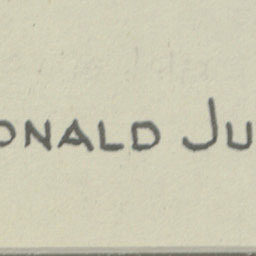 ONALD JU